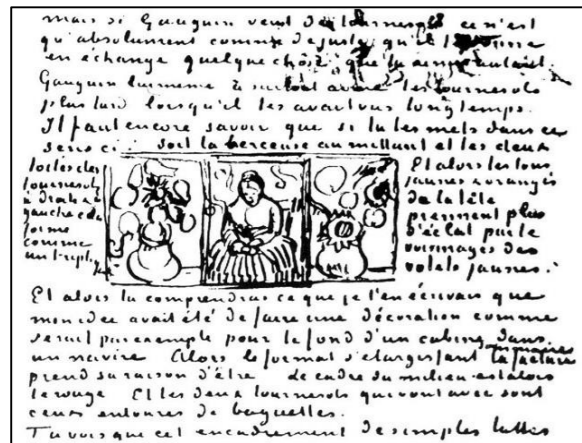 mais si Gauguin veut des tournesols ce n'est
qu'absolument comme de juste qu'il te donne
en échange quelque chose que tu aimes autant.
Gauguin lui même a surtout aimé les tournesols
plus tard lorsqu'il les avait vus longtemps.
Il faut encore savoir que si tu les mets dans ce
sens ci: soit la berceuse au milieu et les deux
toiles des
tournesols
à droite et à
gauche cela
forme
comme
un triptyque
Et alors les tons
jaunes & orangés
de la tête
prennent plus
d'éclat par le
voisinages des
volets jaunes.
Et alors tu comprendras ce que je t'en écrivais que
mon idée avait été de faire une décoration comme
serait par exemple pour le fond d'un cabine dans
un navire Alors le format s'élargissant la facture
sommaire
prend sa raison d'être le cadre du milieu est alors
le rouge Et les deux tournesols qui vont avec sont
ceux entourés de baguettes.
Tu vois que cet encadrement de simples lattes